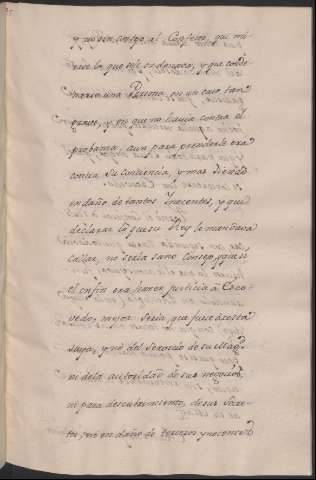 y no sin consejo al Confesor, que mi
rase lo que
maria una Persona, en un caso tan
grave, y en que no havia contra el
probanza, aun para prenderle era
contra Su Conciencia, y mas siendo
en daño de tantos Inocentes, y que
declarar lo que su Rey le mandava
callar, no seria sano Consejo, y que si
el onfin era hacer justicia à Esco-
vedo, mejor seria que fuese à costa
suya, y no del Servicio de su Mag.d
ni dela autoridad de sus negocios,
ni para descubrimiento, de sus Secre-
tos, ni en daño de terceros ynocentes